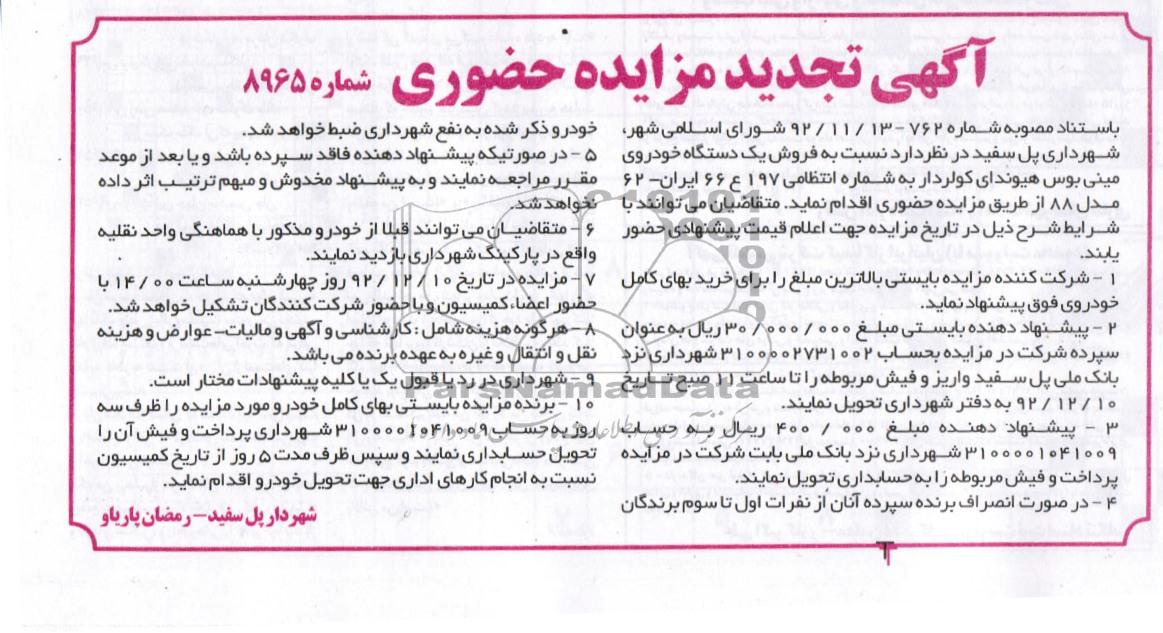 آگهی تجدید مزایده حضوری شماره ۸۹۶۵
باستناد مصوبه شماره ۷۶۲ – ۱۳ / ۱۱ / ۹۲ شورای اسلامی شهر،
شهرداری پل سفید در نظر دارد نسبت به فروش یک دستگاه خودروی
مینی بوس هیوندای کولردار به شماره انتظامی ۱۹۷ ع ۶۶ ایران– ۶۲
مدل ۸۸ از طریق مزایده حضوری اقدام نماید. متقاضیان می توانند با
شرایط شرح ذیل در تاریخ مزایده جهت اعلام قیمت پیشنهادی حضور
یابند.
۱ – شرکت کننده مزایده بایستی بالاترین مبلغ را برای خرید بهای کامل
خودروی فوق پیشنهاد نماید.
۲ – پیشنهاد دهنده بایستی مبلغ ۰۰۰ / ۰۰۰ / ۳۰ ریال به عنوان
سپرده شرکت در مزایده بحساب ۳۱۰۰۰۰۲۷۳۱۰۰۲ شهرداری نزد
بانک ملی پل سفید واریز و فیش مربوطه را تا ساعت ۱۱ صبح تاریخ
۱۰ / ۱۲ / ۹۲ به دفتر شهرداری تحویل نمایند.
۳ – پیشنهاد دهنده مبلغ ۰۰۰ / ۴۰۰ ریال به حساب
۳۱۰۰۰۰۱۰۴۱۰۰۹ شهرداری نزد بانک ملی بابت شرکت در مزایده
پرداخت و فیش مربوطه را به حسابداری تحویل نمایند.
۴ – در صورت انصراف برنده سپرده آنان از نفرات اول تا سوم برندگان
خودرو ذکر شده به نفع شهرداری ضبط خواهد شد.
۵ – در صورتیکه پیشنهاد دهنده فاقد سپرده باشد و یا بعد از موعد
مقرر مراجعه نمایند و به پیشنهاد مخدوش و مبهم ترتیب اثر داده
نخواهد شد.
۶ – متقاضیان می توانند قبلا از خودرو مذکور با هماهنگی واحد نقلیه
واقع در پارکینگ شهرداری بازدید نمایند.
۷ – مزایده در تاریخ ۱۰ / ۱۲ / ۹۲ روز چهارشنبه ساعت ۰۰ / ۱۴ با
حضور اعضاء کمیسیون و با حضور شرکت کنندگان تشکیل خواهد شد.
۸ – هر گونه هزینه شامل : کارشناسی و آگهی و مالیات – عوارض و هزینه
نقل و انتقال و غیره به عهده برنده می باشد.
۹ – شهرداری در رد یا قبول یک یا کلیه پیشنهادات مختار است.
۱۰ – برنده مزایده بایستی بهای کامل خودرو مورد مزایده را ظرف سه
روز به حساب ۳۱۰۰۰۰۱۰۴۱۰۰۹ شهرداری پرداخت و فیش آن را
تحویل حسابداری نمایند و سپس ظرف مدت ۵ روز از تاریخ کمیسیون
نسبت به انجام کارهای اداری جهت تحویل خودرو اقدام نماید.
شهردار پل سفید – رمضان پاریاو
ParsNamadData